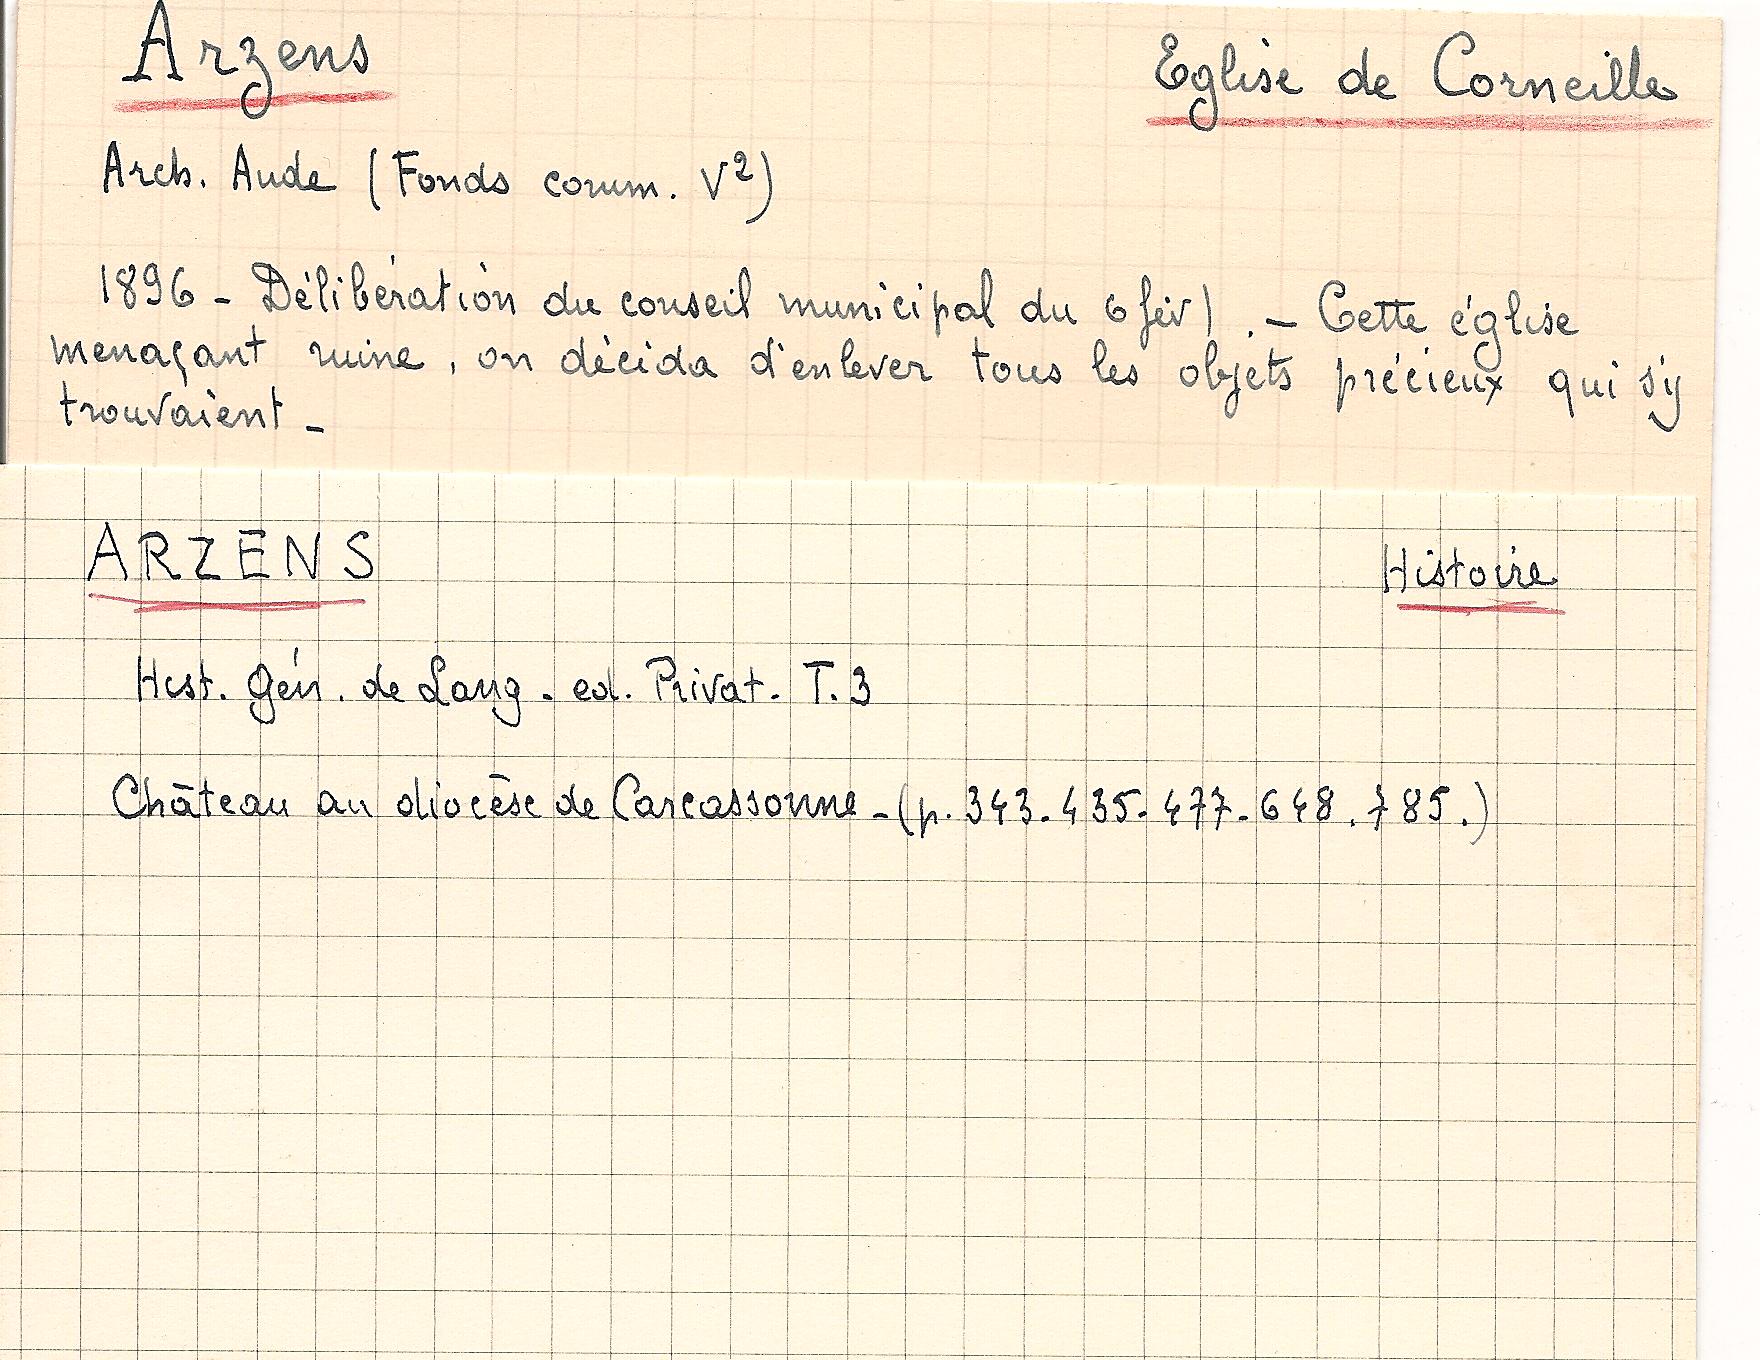 Arzens
Eglise de Corneille
Arch. Aude (Fonds comm. V²)
1896 - Délibération du conseil municipal du 6 fév). - Cette église
menaçant ruine, on décida d'enlever tous les objets précieux qui s'y
trouvaient -
ARZENS
Histoire
Hist. Gén. de Lang. ed. Privat. T.3
Château au diocèse de Carcassonne - (p. 343. 435. 477. 648. 785.)